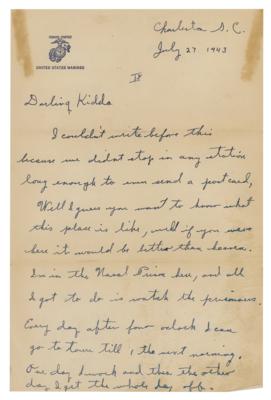 Charleston S. C.
July 27 1943
UNITED STATES MARINES
Darling Kidda
I couldn't write before this
because we didnt stop in any station
long enough to even send a postcard,
Well I guess you want to know what
this place is like, well if you were
here it would be better than heaven.
Im in the Naval Prison here, and all
I got to do is watch the prisoners.
Every day after four oclock I can
go to town till the next morning.
One day I work and then the other
day I get the whole day off.